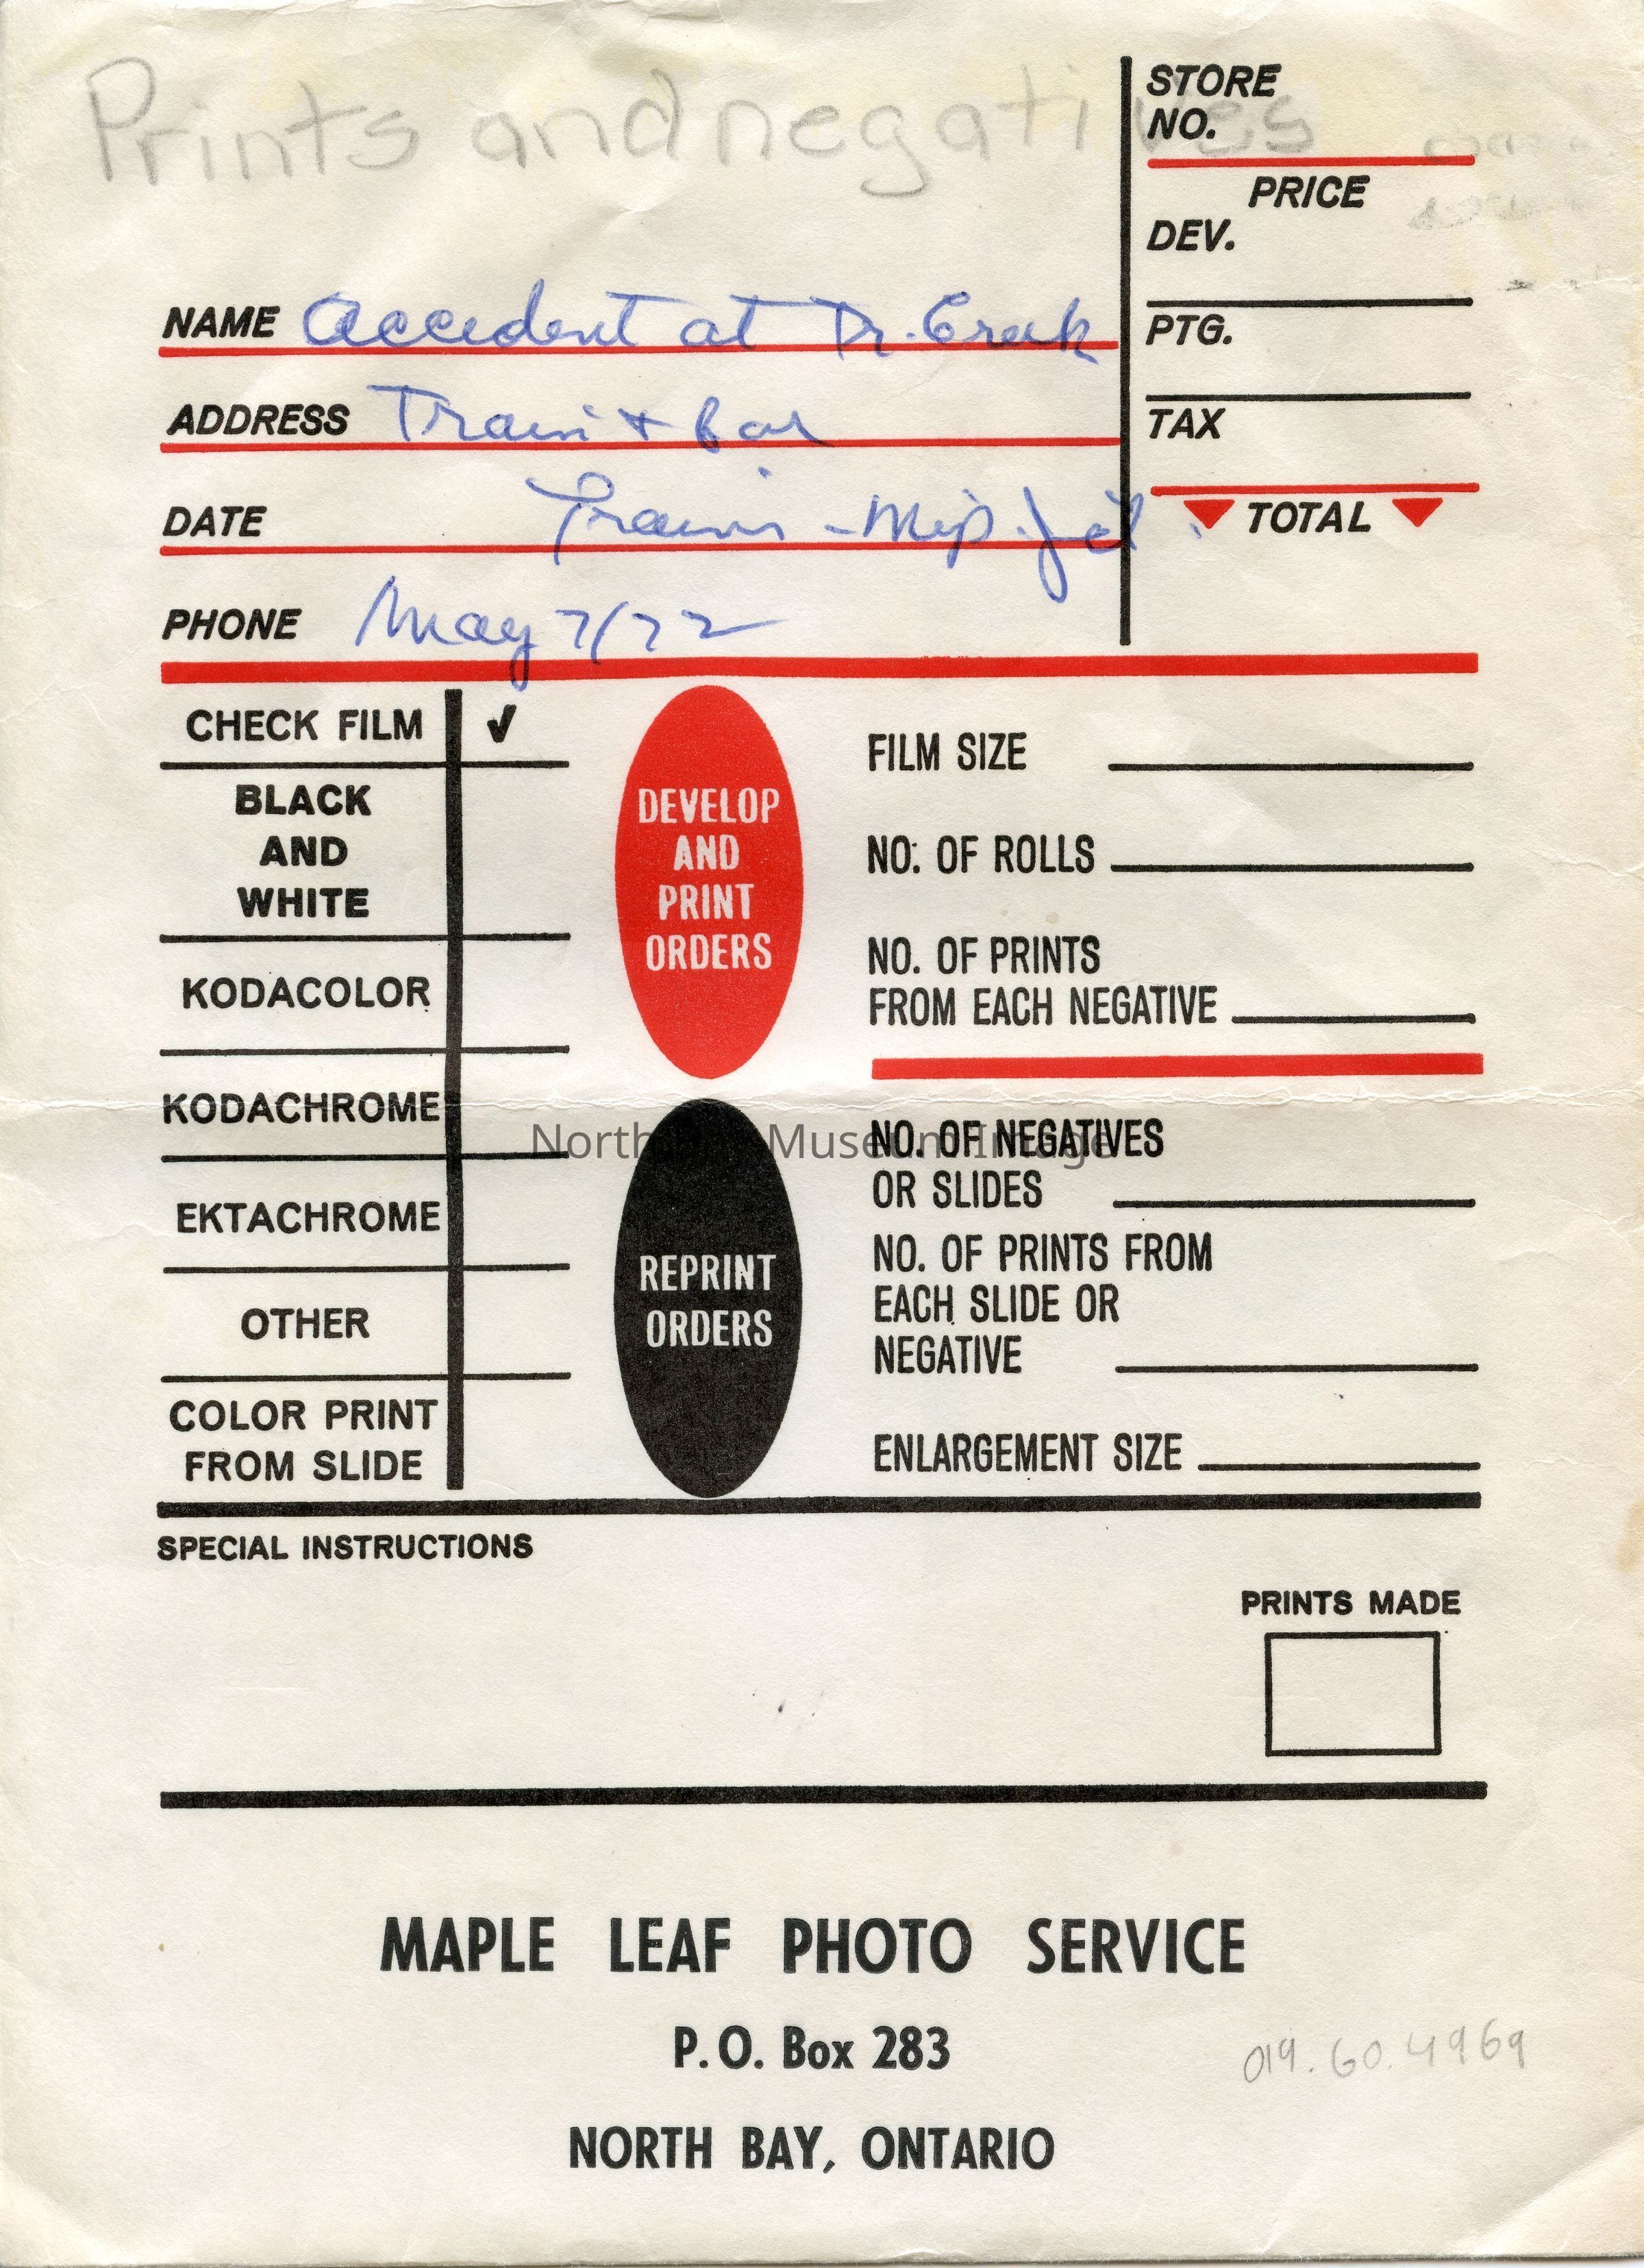 Prints and negatives
STORE
NO.
PRICE
DEV.
PTG.
TAX
TOTAL
NAME Accident at Tr. Creek
ADDRESS Train + Car
DATE Trains - Mip. Jct.
PHONE May 7/72
CHECK FILM ✓
BLACK
AND
WHITE
KODACOLOR
KODACHROME
EKTACHROME
OTHER
COLOR PRINT
FROM SLIDE
DEVELOP
AND
PRINT
ORDERS
REPRINT
ORDERS
FILM SIZE
NO. OF ROLLS
NO. OF PRINTS
FROM EACH NEGATIVE
NO. OF NEGATIVES
OR SLIDES
NO. OF PRINTS FROM
EACH SLIDE OR
NEGATIVE
ENLARGEMENT SIZE
North Bay Museum Image
SPECIAL INSTRUCTIONS
PRINTS MADE
MAPLE LEAF PHOTO SERVICE
P.O. Box 283
019.60.4969
NORTH BAY, ONTARIO